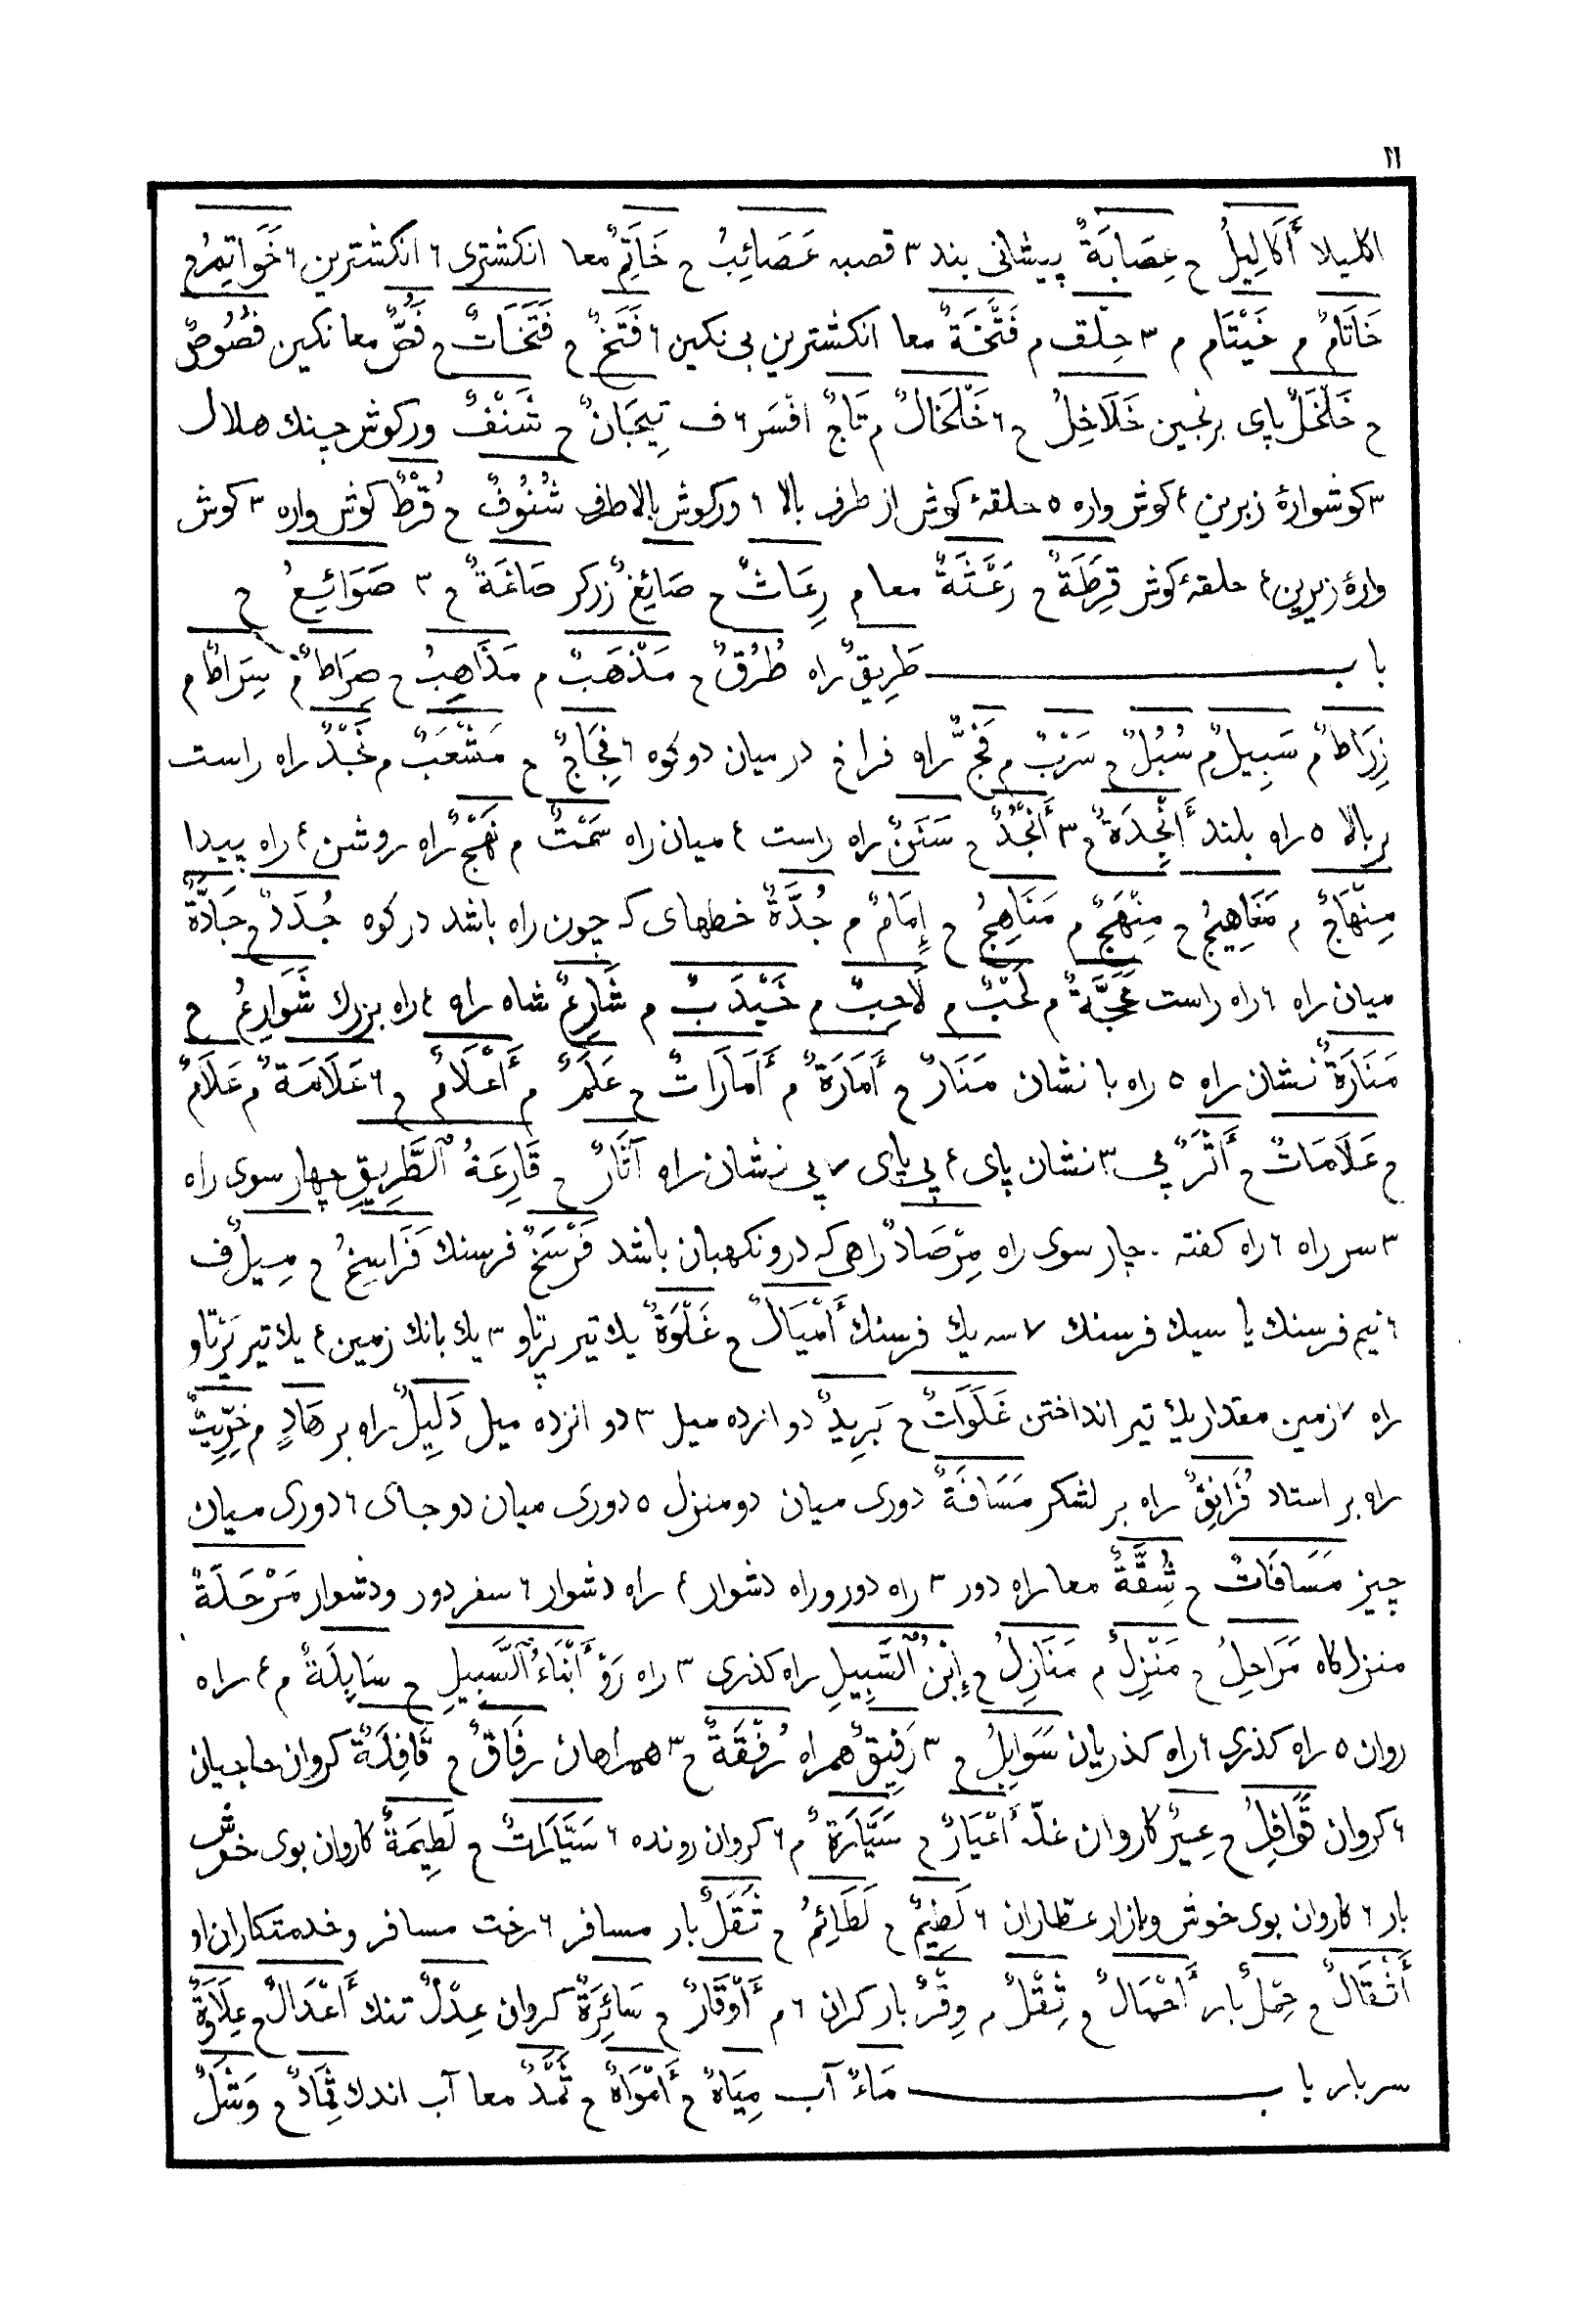 ١١
اكليلا أَكَالِيلُ ح عِصَابَةٌ پيشانى بند ٣ قصبه عَصَائِبُ ح خَاتِمٌ معا انكشترى ٦ انكشترين ٦ خَوَاتِمُ ح
خَاتَامٌ م خَيْتَام م ٣ حِلْق م فَتْخَةٌ معا انكشترين بى نكين ٦ فَتَخٌ ح فَتَخَاتٌ ح فَصٌّ معا نكين فُصُوصٌ
ح خَلْخَلٌ پاى برنجين خَلَاخِلُ ح ٦ خَلْخَالٌ م تَاجٌ افْسَر ٦ ف تِيجَانٌ ح شَنْفٌ وركوش چينك هلال
٣ كوشوارۀ زبرين ٤ كوش واره ٥ حلقۀ كوش از طرف بالا ٦ وركوش بالا طرف شُنُوفٌ ح قُرْطٌ كوش واره ٣ كوش
وارۀ زيرين ٤ حلقۀ كوش قِرَطَةٌ ح رَعْثَةٌ معا م رِعَاثٌ ح صَائِغٌ زركر صَاغَةٌ ح ٣ صَوَائِغُ ح
باب طَرِيقٌ راه طُرُقٌ ح مَذْهَبٌ م مَذَاهِبُ ح صِرَاطٌ م سِرَاطٌ م
زِرَاطٌ م سَبِيلٌ م سُبُلٌ ح سَرْبٌ م فَجٌّ راه فراخ در ميان دو كوه ٦ فِجَاجٌ ح مَشْعَبٌ م نَجْدٌ راه راست
بر بالا ٥ راه بلند أَنْجِدَةٌ ح ٣ أَنْجُدٌ ح سَنَنٌ راه راست ٤ ميان راه سَمْتٌ م نَهْجٌ راه روشن ٤ راه پيدا
مِنْهَاجٌ م مَنَاهِيجُ ح مِنْهَجٌ م مَنَاهِجُ ح إِمَامٌ م جُدَّةٌ خطهاى كه چون راه باشد در كوه جُدَدٌ ح جَادَّةٌ
ميان راه ٦ راه راست مَحَجَّةٌ م لَحْبٌ م لَاحِبٌ م خَيْدَبٌ م شَارِعٌ شاه راه ٤ راه بزرك شَوَارِعُ ح
مَنَارَةٌ نشان راه ٥ راه با نشان مَنَارٌ ح أَمَارَةٌ م أَمَارَاتٌ ح عَلَمٌ م أَعْلَامٌ ح ٦ عَلَامَةٌ م عَلَامٌ
ح عَلَامَاتٌ ح أَثَرٌ پى ٣ نشان پاى ٤ پى پاى ٧ پى نشان راه آثَارٌ ح قَارِعَةُ ٱلطَّرِيقِ چهار سوى راه
٣ سر راه ٦ راه كفته . چار سوى راه مِرْصَادٌ راهى كه درو نكهبان باشد فَرْسَخٌ فرسنك فَرَاسِخُ ح مِيلٌ ف
٦ نيم فرسنك يا سيك فرسنك ٧ سه يك فرسنك أَمْيَالٌ ح غَلْوَةٌ يك تير پرتاو ٣ يك بانك زمين ٤ يك تير پَرْتاو
راه ٧ زمين مقدار يك تير انداختن غَلَوَاتٌ ح بَرِيدٌ دو ازده ميل ٣ دو انزده ميل دَلِيلٌ راه بر هَادٍ م خِرِّيتٌ
راه بر استاد فُرَانِقٌ راه بر لشكر مَسَافَةٌ دورى ميان دو منزل ٥ دورى ميان دو جاى ٦ دورى ميان
چيز مَسَافَاتٌ ح شُِقَّةٌ معا راه دور ٣ راه دور وراه دشوار ٤ راه دشوار ٦ سفر دور ودشوار مَرْحَلَةٌ
منزلكاه مَرَاحِلُ ح مَنْزِلٌ م مَنَازِلُ ح إِبْنُ ٱلسَّبِيلِ راه كذرى ٣ راه رَوْ أَبْنَاءُ ٱلسَّبِيلِ ح سَابِلَةٌ م ٤ راه
روان ٥ راه كذرى ٦ راه كذريان سَوَابِلُ ح ٣ رَفِيقٌ همراه رُفْقَةٌ ح ٣ همراهان رِفَاقٌ ح قَافِلَةٌ كروان حاجيان
٦ كروان قَوَافِلُ ح عِيرٌ كاروان غلّه أَعْيَارٌ ح سَيَّارَةٌ م ٦ كروان رونده ٦ سَيَّارَاتٌ ح لَطِيمَةٌ كاروان بوى خوش
بار ٦ كاروان بوى خوش وبازار عطّاران ٦ لَطِيمٌ ح لَطَائِمُ ح ثَقَلٌ بار مسافر ٦ رخت مسافر وخدمتكاران او
أَثْقَالٌ ح حِمْلٌ بار أَحْمَالٌ ح ثِقْلٌ م وِقْرٌ بار كران ٦ م أَوْقَارٌ ح سَائِرَةٌ كروان عِدْلٌ تنك أَعْدَالٌ ح عِلَاوَةٌ
سر بار باب مَاءٌ آب مِيَاهٌ ح أَمْوَاهٌ ح ثَمَْدٌ معا آب اندك ثِمَادٌ ح وَشَلٌ